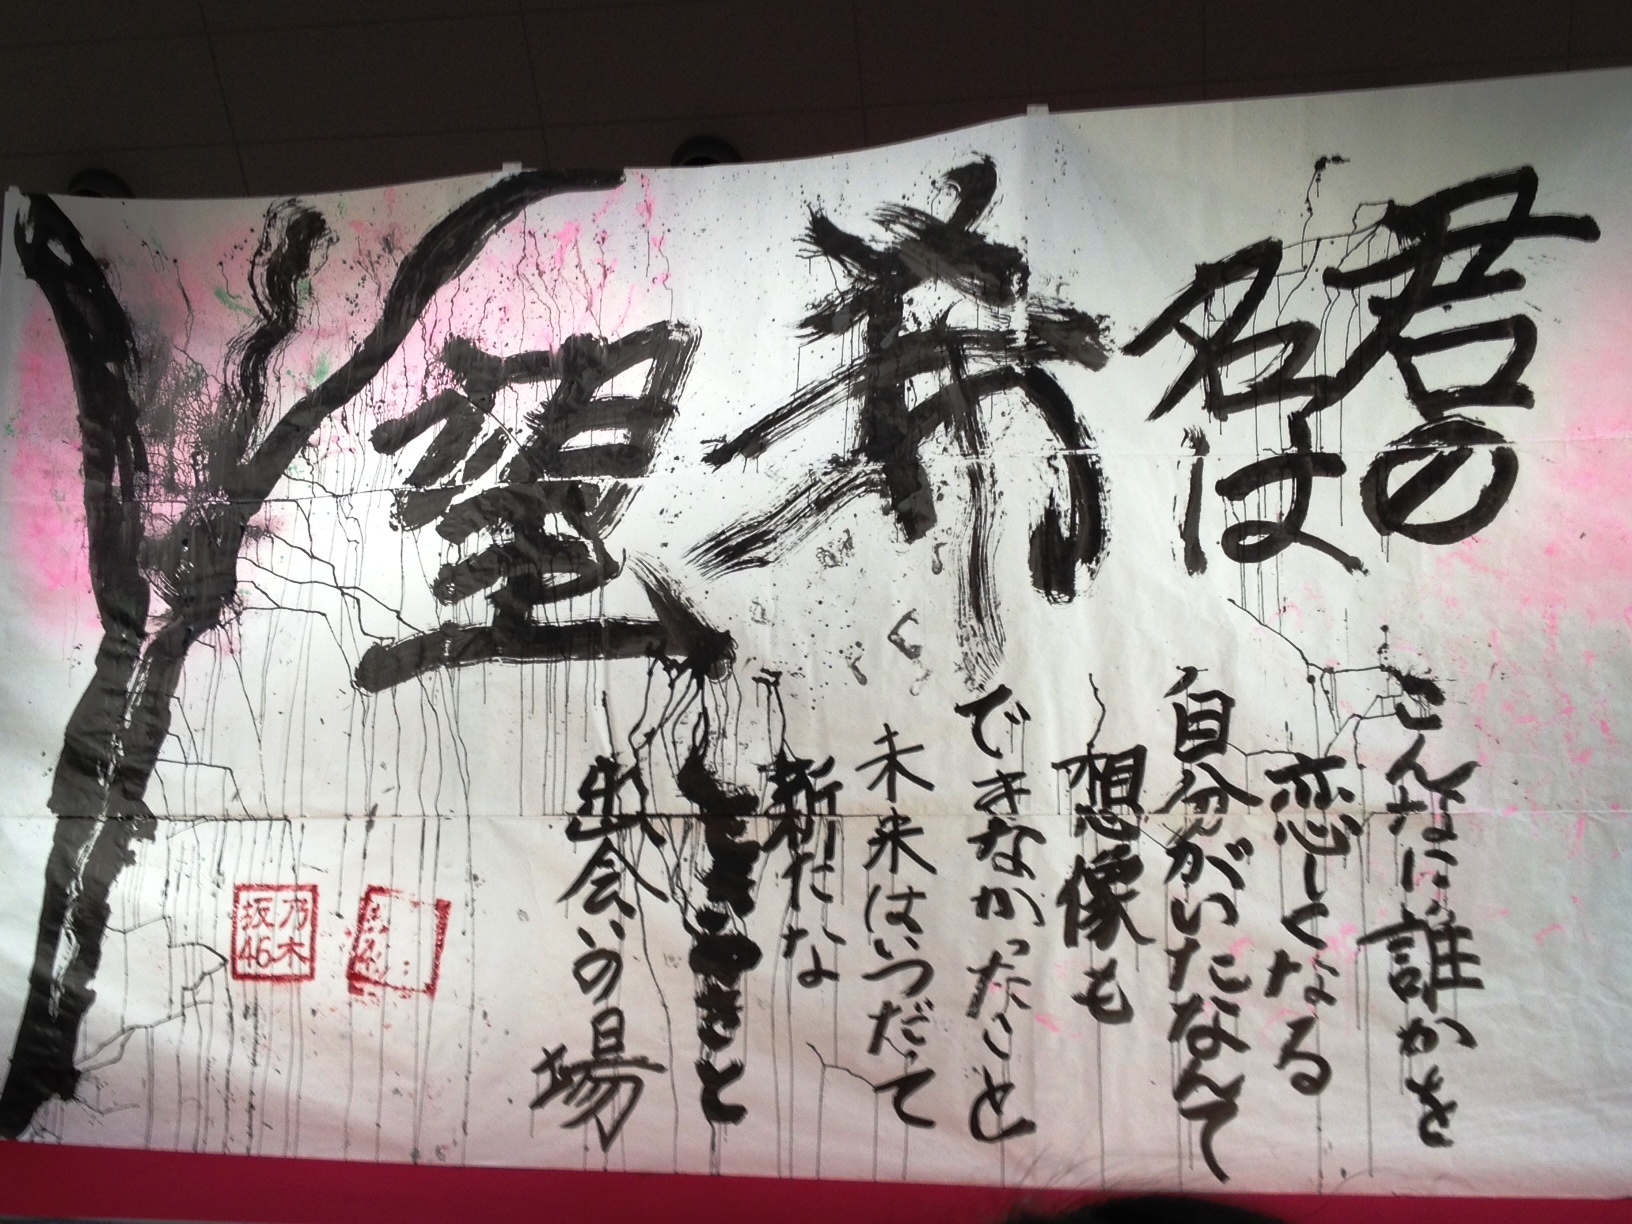 君の
名は
希望
こんなに誰かを
恋しくなる
自分がいたなんて
想像も
できなかったこと
未来はいつだって
新たな
ときめきと
出会いの場
乃木
坂46